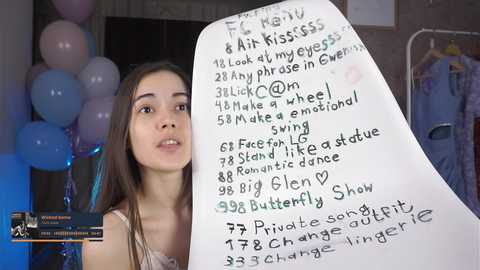 FG Menu
8 Air Kissssss
18 Look at my eyesss
28 Any phrase in Gwen
38 Lick C@m
48 Make a wheel
58 Make a emotional
swing
68 Face for LG
78 Stand like a statue
88 Romantic dance
98 Big Glen ♡
998 Butterfly Show
77 Private song
178 Change outfit
333 Change lingerie